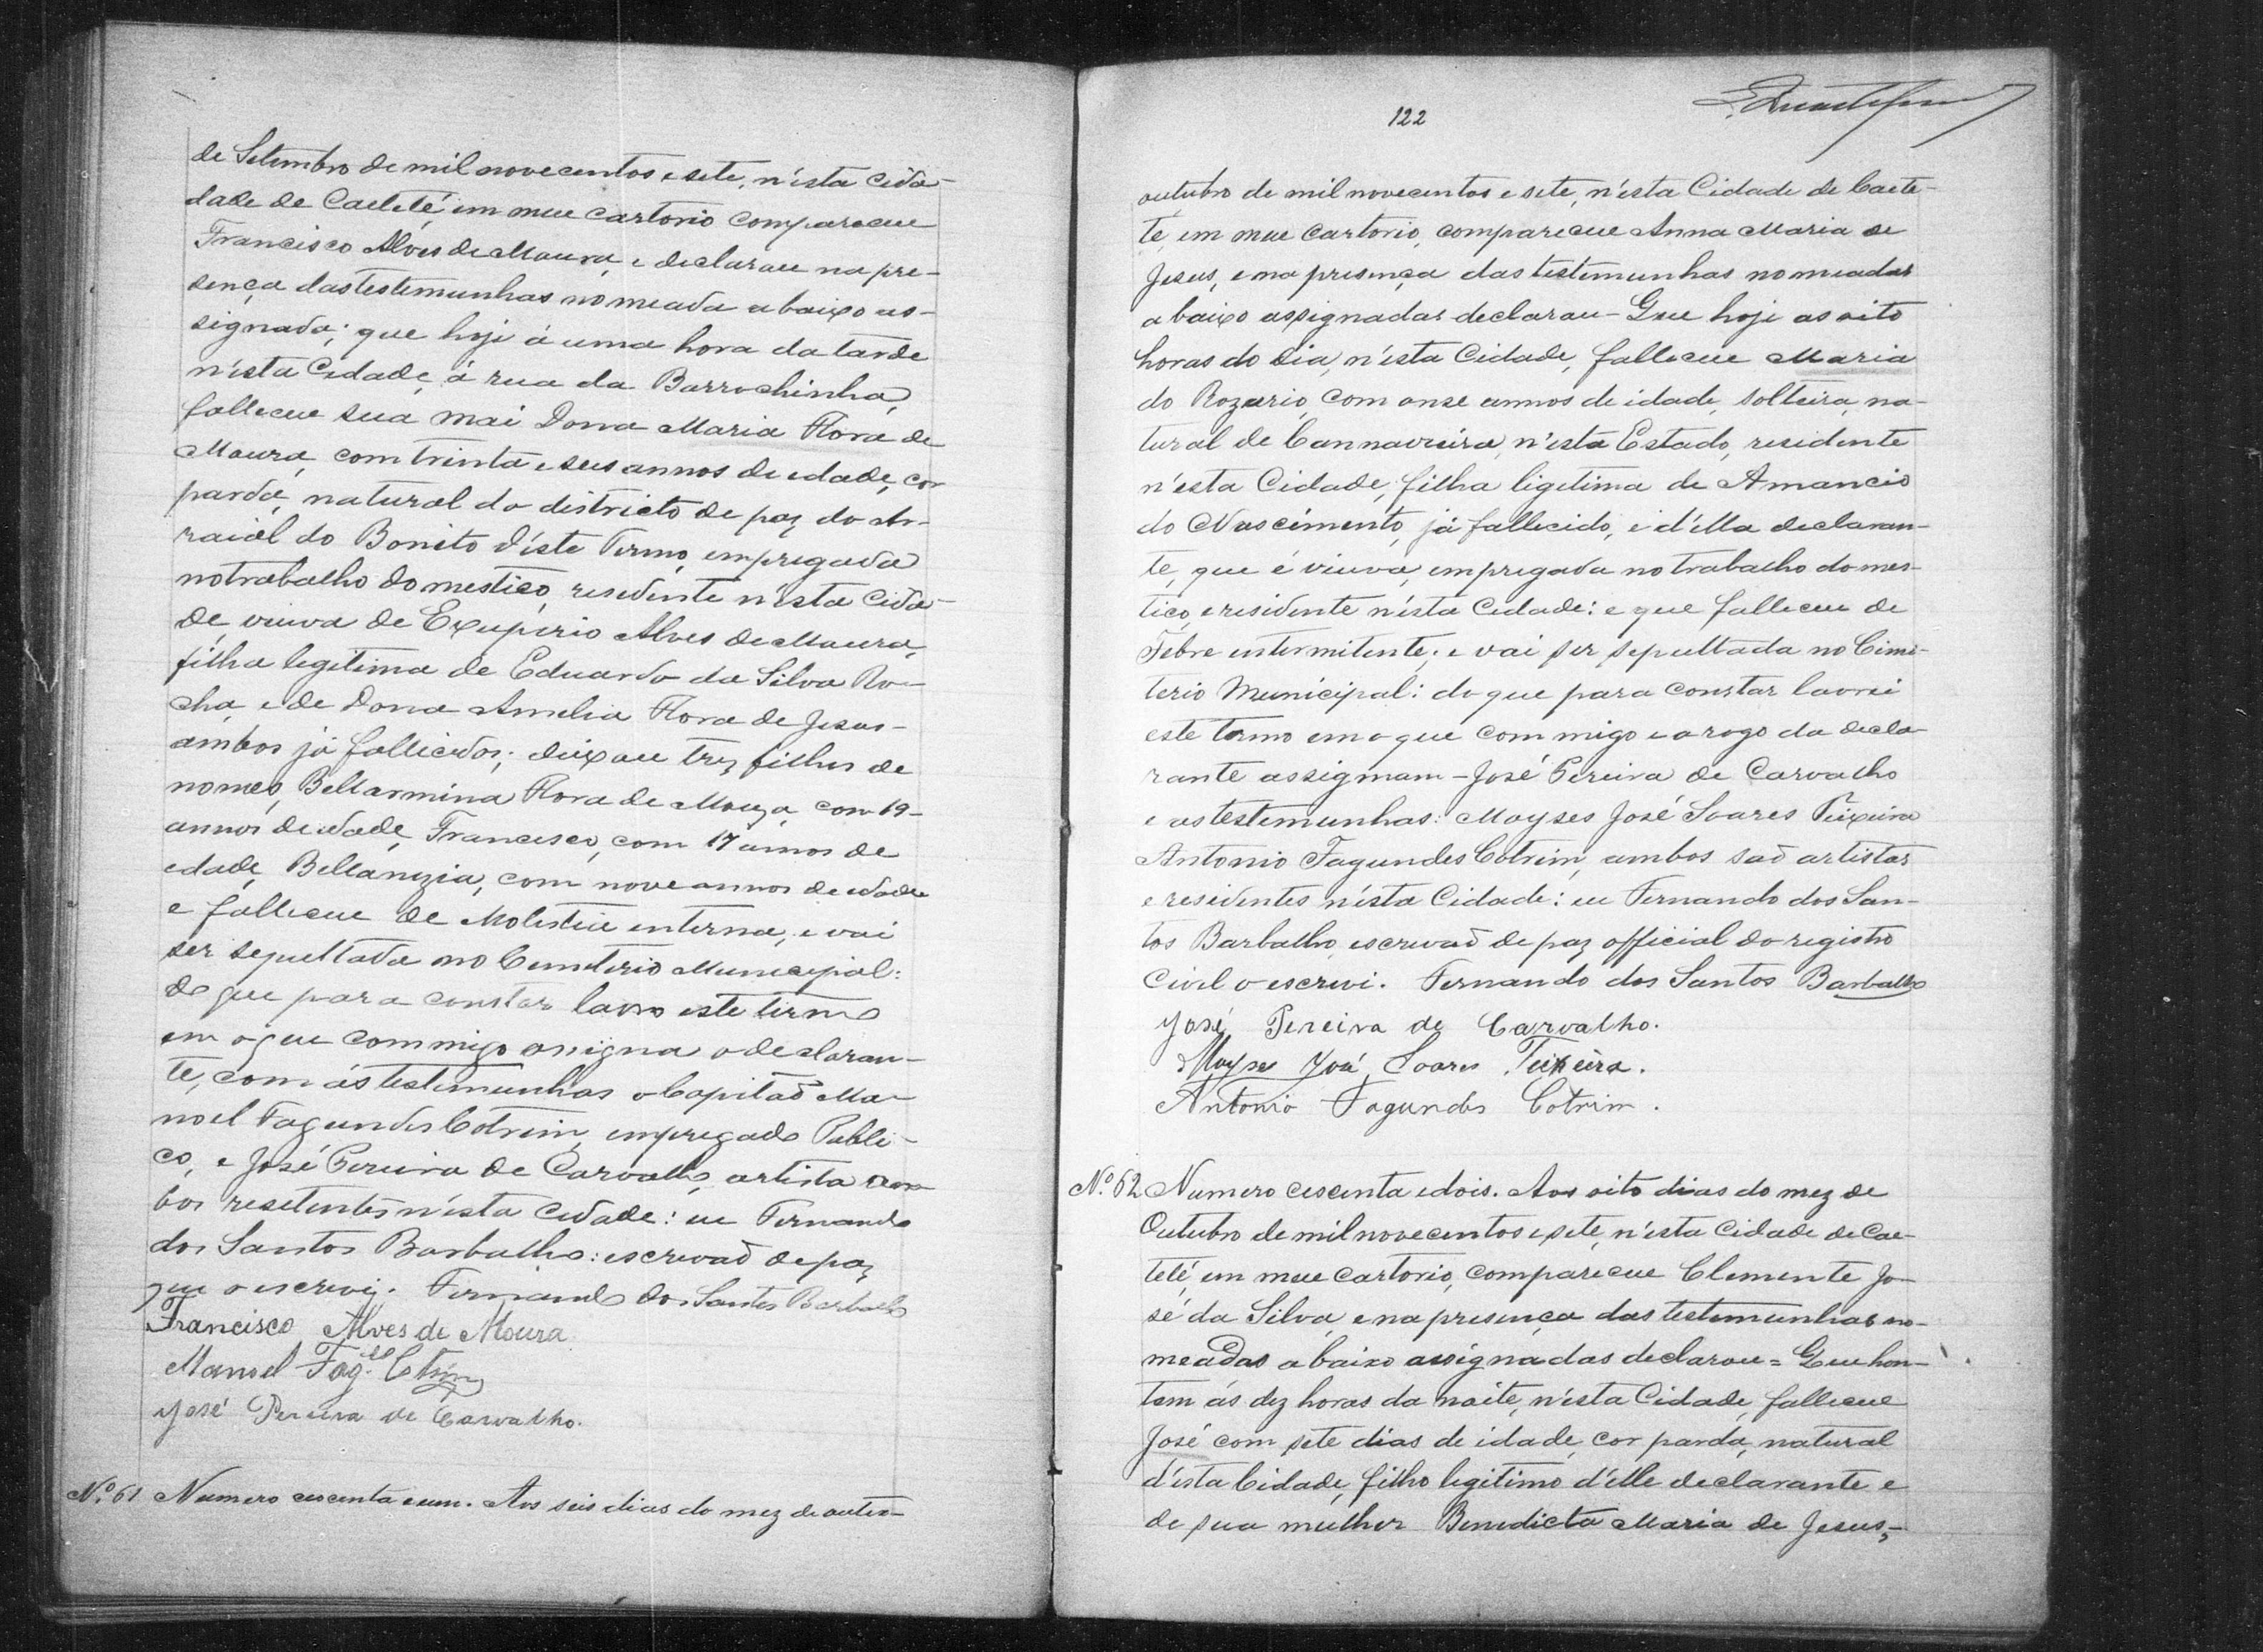 de Setembro de mil novecentos e sete, n'esta Cida-
dade de Caeteté em meu cartorio compareceu
Francisco Alves de Moura, e declarou na pre-
sença das testemunhas nomeada abaixo as-
signada; que hoje á uma hora da tarde
n'esta Cidade, á rua da Barrochinha,
falleceu sua mai Dona Maria Flora de
Moura, com trinta e seis annos de edade, cor
parda, natural do districto de paz do Ar-
raial do Bonito d'este Termo, empregada
no trabalho domestico, resedente n'esta Cida-
de viuva de Exuperio Alves de Moura,
filha legitima de Eduardo da Silva Ro-
cha, e de Dona Amelia Flora de Jesus-
ambos já fallicidos; deixou trez filhos de
nomes, Bellarmina Flora de Moura, com 19-
annos de edade, Francisco, com 17 annos de
edade, Bellanizia, com nove annos de edade
e falleceu de Molestia enterna, e vai
ser sepultada no Cemiterio Municipal:
do que para constar lavro este termo
em o que commigo assigna o declaran-
te, com ás testemunhas o Capitaõ Ma-
noel Fagundes Cotrim, empregado Publi-
co, e José Pereira de Carvalho, artista am
bos resetentes n'esta Cidade: eu Fernando
dos Santos Barbalho: escrivaõ de paz
que o escrevi. Fernando dos Santos Barbalho
Francisco Alves de Moura
Manoel Fag.des Cotrim
José Pereira de Carvalho.
Nº. 61 Numero cescenta e um. Aos seis dias do mez de outu-
122
outubro de mil novecentos e sete, n'esta Cidade de Caete-
té, em meu Cartorio, compareceu Anna Maria de
Jesus, e na presença das testemunhas nomeadas
abaixo assignadas declarou - Que hoje as oito
horas do dia, n'esta Cidade, falleceu Maria
do Rozario, com onze annos de idade, solteira, na-
tural de Cannavieira, n'esta Estado, residente
n'esta Cidade, filha ligitima de Amancio
do Nascimento, já fallecido, e d'ella declaran-
te, que é viuva, empregada no trabalho domes-
tico, e residente n'esta Cidade: e que falleceu de
Febre entermitente; e vai ser sepultada no Cimi-
terio Municipal: do que para constar lavrei
este termo em o que commigo e a rogo da decla-
rante assignam - José Pereira de Carvalho
e as testemunhas: Moyses José Soares Teixeira
Antonio Fagundes Cotrim, ambos saõ artistas
e residentes n'esta Cidade: eu Fernando dos San-
tos Barbalho, escrivaõ de paz official do registro
Civil o escrevi. Fernando dos Santos Barbalho
José Pereira de Carvalho.
Moyses José Soares Teixeira.
Antonio Fagundes Cotrim.
Nº. 62 Numero cescenta e dois. Aos oito dias do mez de
Outubro de mil novecentos e sete, n'esta Cidade de Cae-
teté, em meu Cartorio, compareceu Clemente Jo-
sé da Silva, e na presença das testemunhas no-
meadas abaixo assignadas declarou = Que hon-
tem ás dez horas da noite, n'esta Cidade, falleceu
José com sete dias de idade, cor parda, natural
d'esta Cidade, filho legitimo d'elle declarante e
de sua mulher Benedicta Maria de Jesus,-